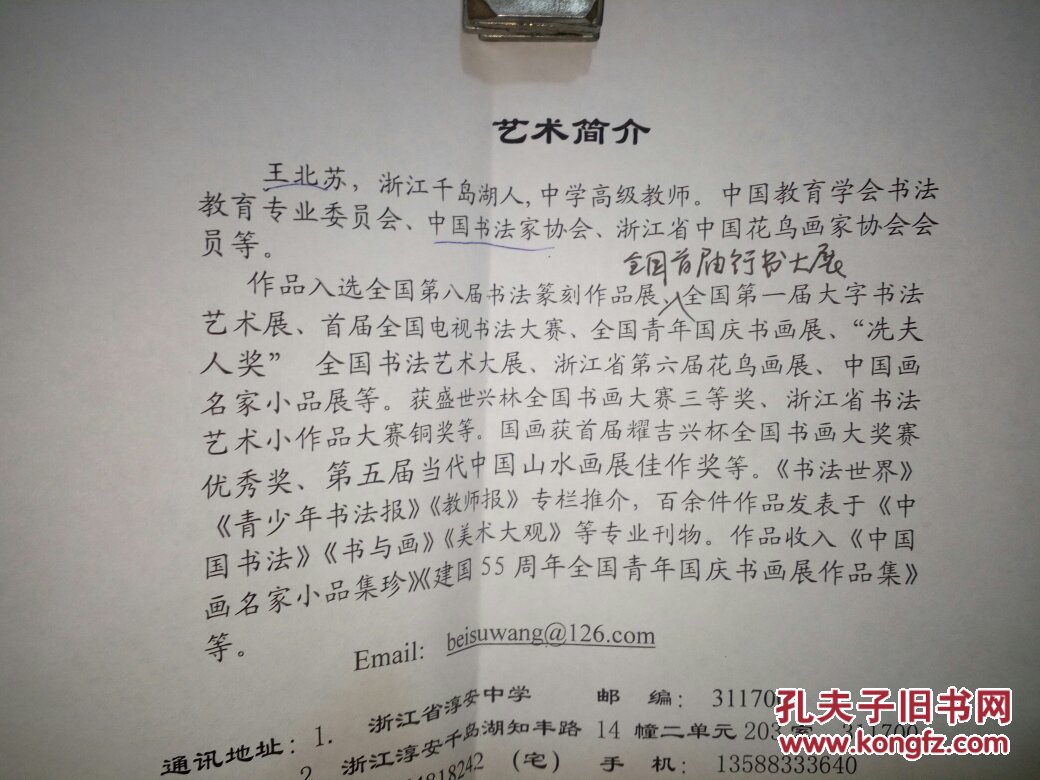 艺术简介
王北苏，浙江千岛湖人，中学高级教师。中国教育学会书法
教育专业委员会、中国书法家协会、浙江省中国花鸟画家协会会
员等。
全国首届行书大展
作品入选全国第八届书法篆刻作品展、全国第一届大字书法
艺术展、首届全国电视书法大赛、全国青年国庆书画展、“冼夫
人奖” 全国书法艺术大展、浙江省第六届花鸟画展、中国画
名家小品展等。获盛世兴林全国书画大赛三等奖、浙江省书法
艺术小作品大赛铜奖等。国画获首届耀吉兴杯全国书画大奖赛
优秀奖、第五届当代中国山水画展佳作奖等。《书法世界》
《青少年书法报》《教师报》专栏推介，百余件作品发表于《中
国书法》《书与画》《美术大观》等专业刊物。作品收入《中国
画名家小品集珍》《建国55周年全国青年国庆书画展作品集》
等。
Email: beisuwang@126.com
通讯地址：1. 浙江省淳安中学 邮 编：311700
2 浙江淳安千岛湖知丰路 14 幢二单元 203 室 311700
4818242 (宅) 手 机：13588333640
孔夫子旧书网
www.kongfz.com